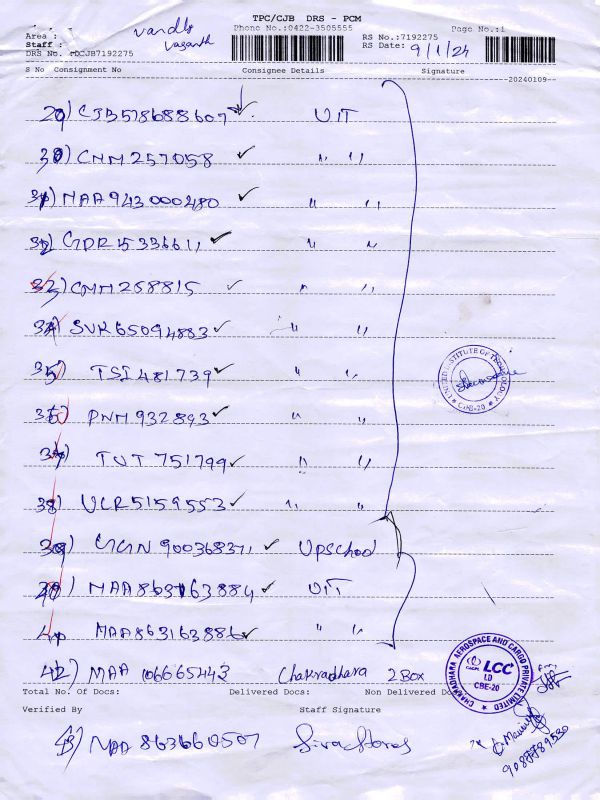 TPC/CJB DRS - PCM
Phone No.:0422-3505555
Page No.:1
Area :
Vandly
Staff :
Vasanth
DRS No. :DCJB7192275
RS No.:7192275
RS Date: 9/1/24
S No Consignment No Consignee Details Signature
20240109
29) CJB578688607 ✓ UIT
30) CNM257058 ✓ " "
31) MAA943000480 ✓ " "
32) GDR15336611 ✓ " "
33) CMM258815 ✓ " "
34) SVK65094883 ✓ " "
35) TSI481739 ✓ " "
36) PNM932893 ✓ " "
37) TUT751799 ✓ " "
38) VLR5159553 ✓ " "
UNITED INSTITUTE OF TECHNOLOGY
CBE-20
39) GGN900368371 ✓ Upschod
MAA863163884 ✓ UIT
MAA863163886 ✓ " "
42) MAA 106665443 Chakradhara 2 Box
CHAKRADHARA AEROSPACE AND CARGO PRIVATE LIMITED
LCC
LD
CBE-20
Total No. Of Docs: Delivered Docs: Non Delivered Do
Verified By Staff Signature
43) MAA 863660507